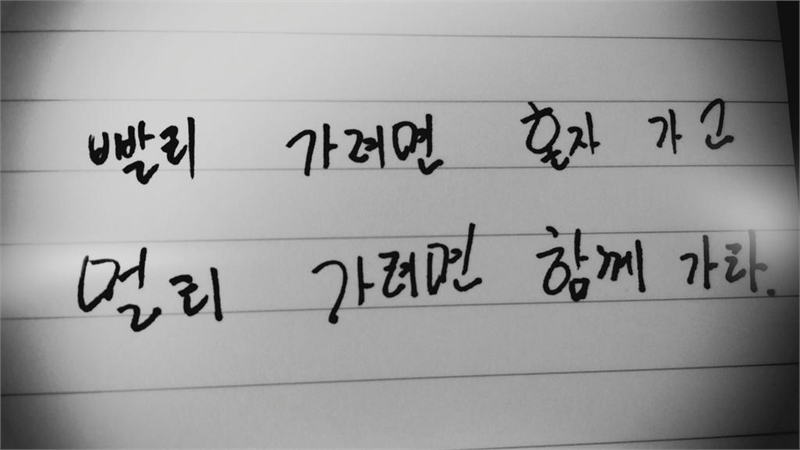 빨리 가려면 혼자 가고
멀리 가려면 함께 가라.